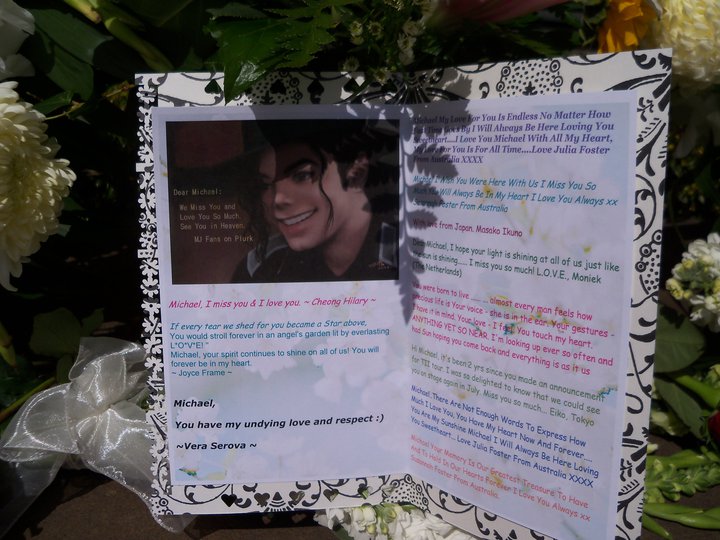 Dear Michael:
We Miss You and
Love You So Much.
See You in Heaven.
MJ Fans on Plurk
Michael, I miss you & I love you. ~ Cheong Hilary ~
If every tear we shed for you became a Star above,
You would stroll forever in an angel's garden lit by everlasting
L*O*V*E!*
Michael, your spirit continues to shine on all of us! You will
forever be in my heart.
~ Joyce Frame ~
Michael,
You have my undying love and respect :)
~Vera Serova ~
Michael My Love For You Is Endless No Matter How
Time Goes By I Will Always Be Here Loving You
Sweetheart....I Love You Michael With All My Heart,
My Love For You Is For All Time....Love Julia Foster
From Australia XXXX
Michael I Wish You Were Here With Us I Miss You So
Much You Will Always Be In My Heart I Love You Always xx
Susannah Foster From Australia
With love from Japan. Masako Ikuno
Dear Michael, I hope your light is shining at all of us just like
the sun is shining..... I miss you so much! L.O.V.E., Moniek
(The Netherlands)
You were born to live ........ almost every man feels how
precious life is Your voice - she is in the ear. Your gestures -
I have it in mind. Your love - I feel You touch my heart.
ANYTHING YET SO NEAR. I'm looking up ever so often and
had Sun hoping you come back and everything is as it us
Hi Michael, it's been 2 yrs since you made an announcement
for TII tour. I was so delighted to know that we could see
you on stage again in July. Miss you so much... Eiko, Tokyo
Michael,There Are Not Enough Words To Express How
Much I Love You, You Have My Heart Now And Forever.....
You Are My Sunshine Michael I Will Always Be Here Loving
You Sweetheart... Love Julia Foster From Australia XXXX
Michael Your Memory Is Our Greatest Treasure To Have
And To Hold In Our Hearts Forever I Love You Always xx
Susannah Foster From Australia.